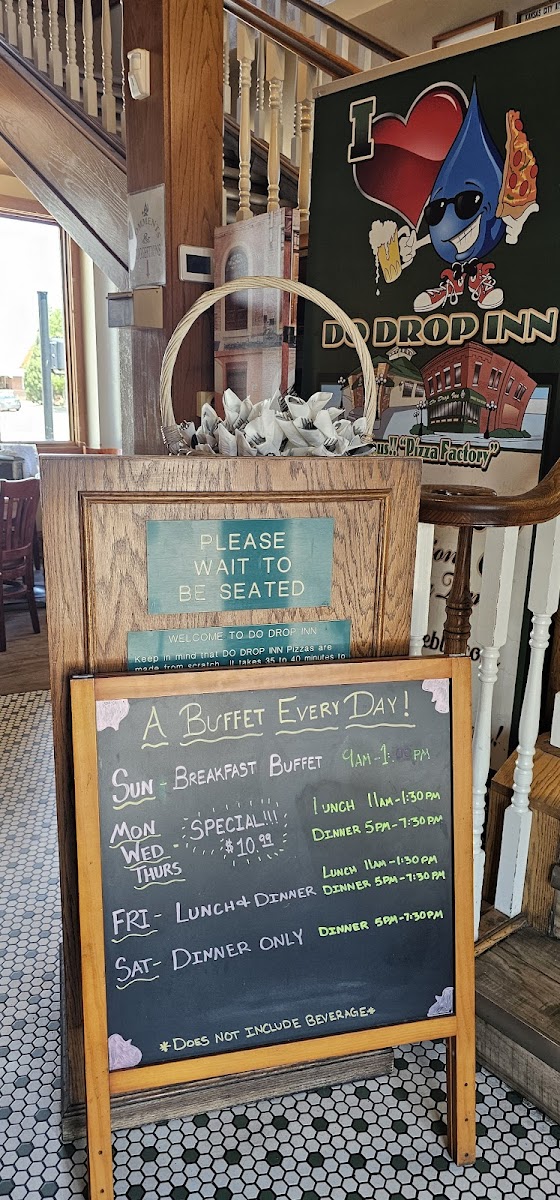 KANSAS CITY
I
DO DROP INN
Do Drop Inn
"Pizza Factory"
PLEASE
WAIT TO
BE SEATED
WELCOME TO DO DROP INN
Keep in mind that DO DROP INN Pizzas are
made from scratch. It takes 35 to 40 minutes to
A BUFFET EVERY DAY!
SUN - BREAKFAST BUFFET 9AM-1: PM
MON SPECIAL!!! LUNCH 11AM-1:30PM
WED - $10.99 DINNER 5PM-7:30PM
THURS
FRI- LUNCH & DINNER LUNCH 11AM-1:30PM
DINNER 5PM-7:30PM
SAT- DINNER ONLY DINNER 5PM-7:30PM
*DOES NOT INCLUDE BEVERAGE*